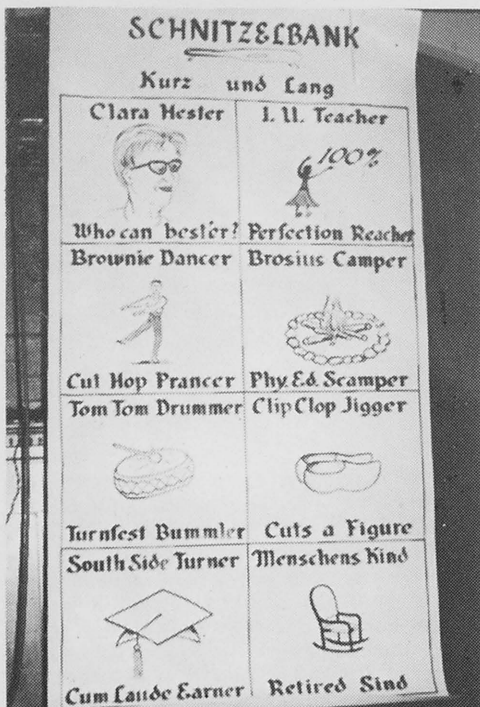 SCHNITZELBANK
Kurz und Lang
Clara Hester
Who can bester?
I. U. Teacher
100%
Perfection Reacher
Brownie Dancer
Cut Hop Prancer
Brosius Camper
Phy. Ed. Scamper
Tom Tom Drummer
Turnfest Bummler
Clip Clop Jigger
Cuts a Figure
South Side Turner
Cum Laude Earner
Menschens Kind
Retired Sind